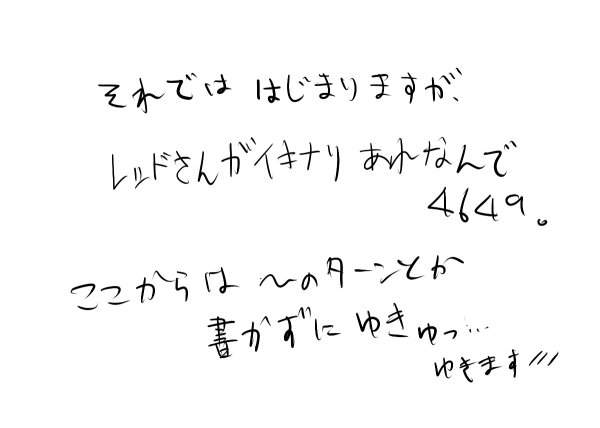 それでは はじまりますが、
レッドさんがイキナリ あれなんで
4649。
ここからは 〜のターンとか
書かずに ゆきゅっ…
ゆきます///